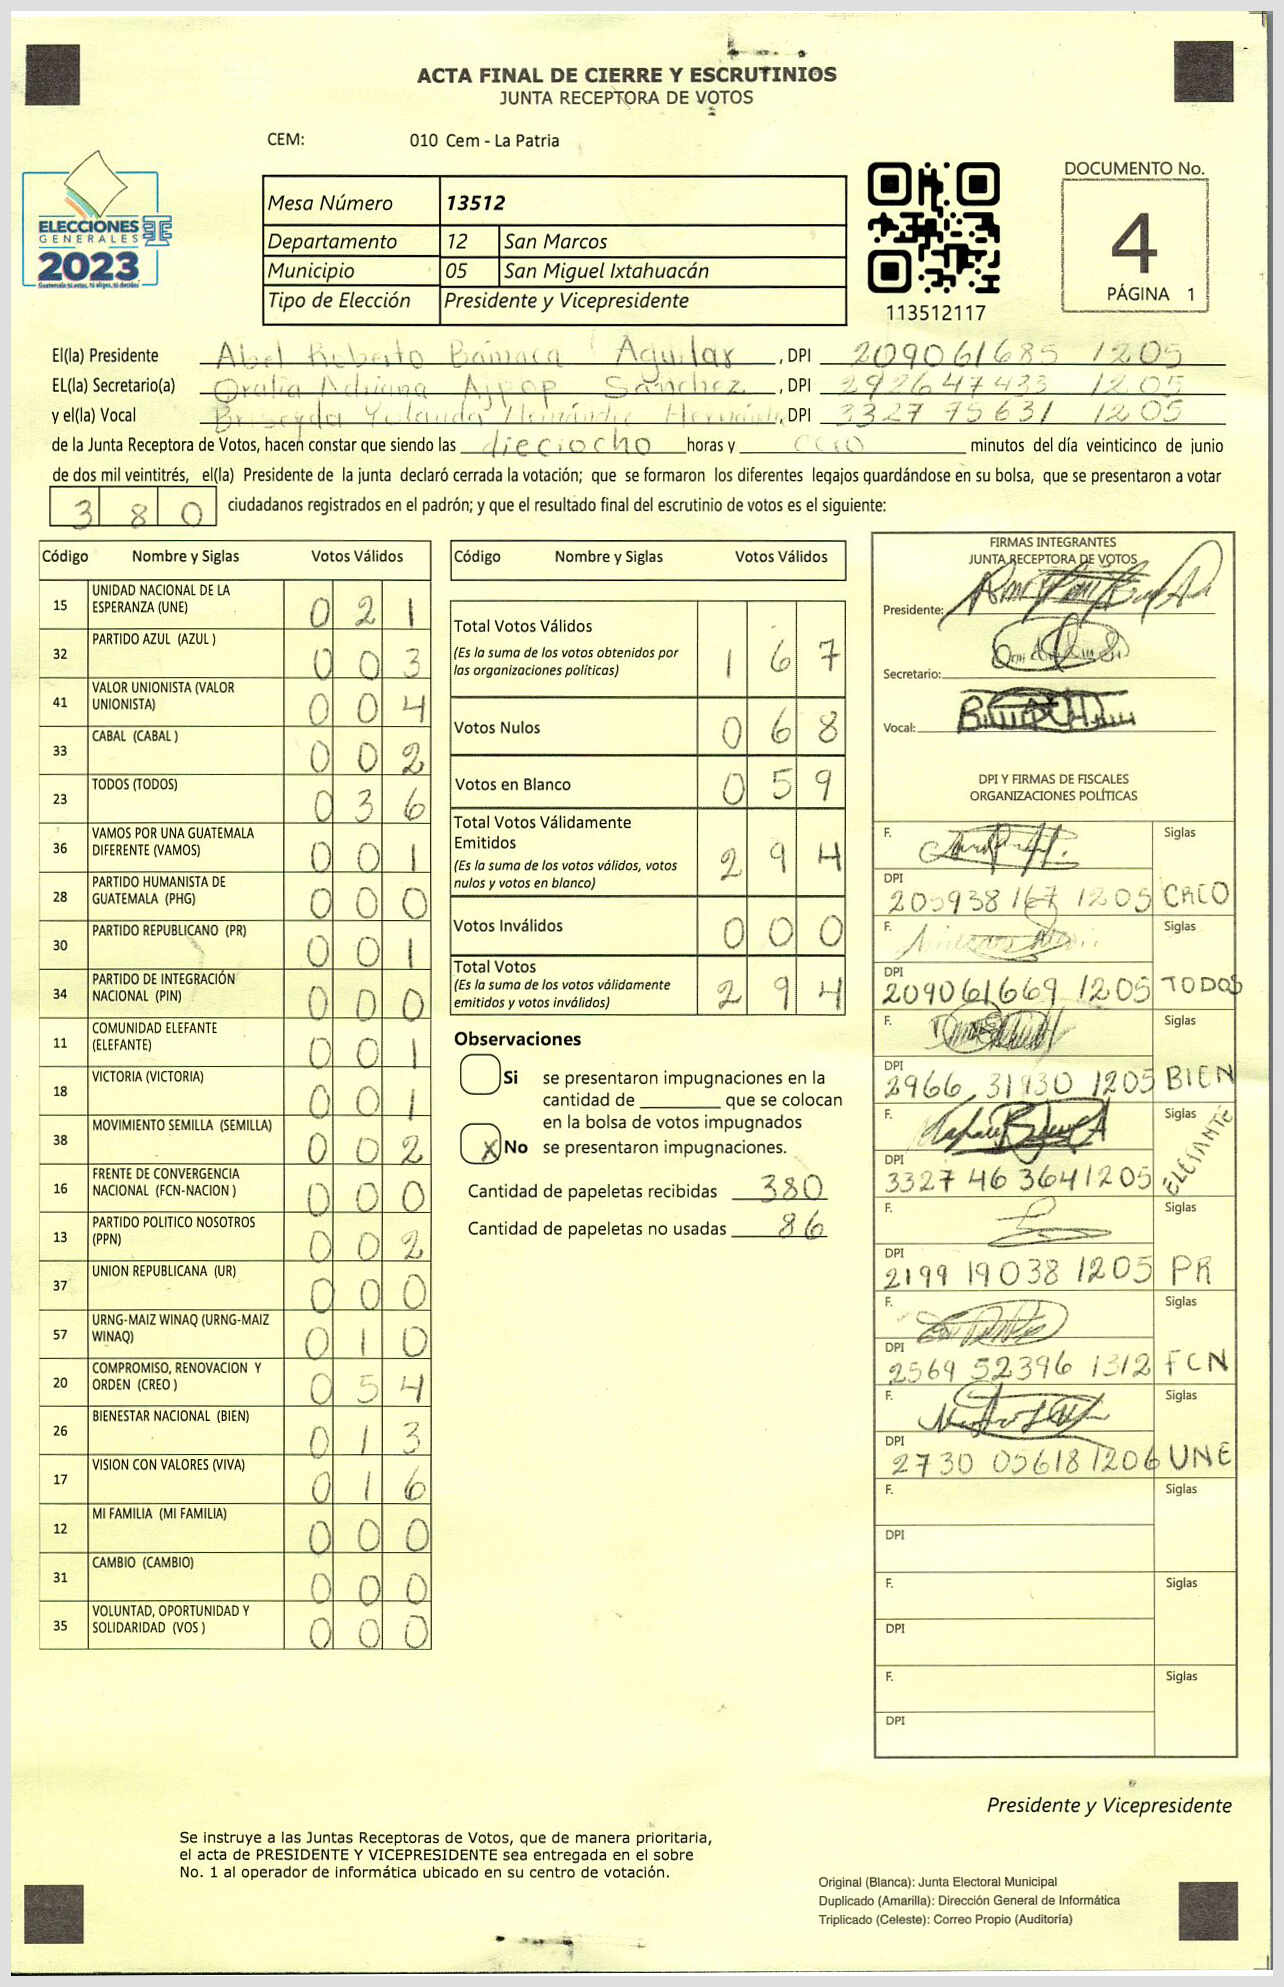 ACTA FINAL DE CIERRE Y ESCRUTINIOS
JUNTA RECEPTORA DE VOTOS
CEM: 010 Cem - La Patria
ELECCIONES
GENERALES
2023
Guatemala si votas, Ni eliges, Ni decides
Mesa Número 13512
Departamento 12 San Marcos
Municipio 05 San Miguel Ixtahuacán
Tipo de Elección Presidente y Vicepresidente
113512117
DOCUMENTO No.
4
PÁGINA 1
El(la) Presidente Abel Roberto Bámaca Aguilar, DPI 209061685 1205
EL(la) Secretario(a) Oralia Adriana Ajpop Sánchez, DPI 292647433 1205
y el(la) Vocal Briseyda Yolanda Hernández Hernández, DPI 3327 75631 1205
de la Junta Receptora de Votos, hacen constar que siendo las dieciocho horas y cero minutos del día veinticinco de junio
de dos mil veintitrés, el(la) Presidente de la junta declaró cerrada la votación; que se formaron los diferentes legajos guardándose en su bolsa, que se presentaron a votar
380 ciudadanos registrados en el padrón; y que el resultado final del escrutinio de votos es el siguiente:
Código Nombre y Siglas Votos Válidos
15 UNIDAD NACIONAL DE LA ESPERANZA (UNE) 0 2 1
32 PARTIDO AZUL (AZUL ) 0 0 3
41 VALOR UNIONISTA (VALOR UNIONISTA) 0 0 4
33 CABAL (CABAL ) 0 0 2
23 TODOS (TODOS) 0 3 6
36 VAMOS POR UNA GUATEMALA DIFERENTE (VAMOS) 0 0 1
28 PARTIDO HUMANISTA DE GUATEMALA (PHG) 0 0 0
30 PARTIDO REPUBLICANO (PR) 0 0 1
34 PARTIDO DE INTEGRACIÓN NACIONAL (PIN) 0 0 0
11 COMUNIDAD ELEFANTE (ELEFANTE) 0 0 1
18 VICTORIA (VICTORIA) 0 0 1
38 MOVIMIENTO SEMILLA (SEMILLA) 0 0 2
16 FRENTE DE CONVERGENCIA NACIONAL (FCN-NACION ) 0 0 0
13 PARTIDO POLITICO NOSOTROS (PPN) 0 0 2
37 UNION REPUBLICANA (UR) 0 0 0
57 URNG-MAIZ WINAQ (URNG-MAIZ WINAQ) 0 1 0
20 COMPROMISO, RENOVACION Y ORDEN (CREO ) 0 5 4
26 BIENESTAR NACIONAL (BIEN) 0 1 3
17 VISION CON VALORES (VIVA) 0 1 6
12 MI FAMILIA (MI FAMILIA) 0 0 0
31 CAMBIO (CAMBIO) 0 0 0
35 VOLUNTAD, OPORTUNIDAD Y SOLIDARIDAD (VOS ) 0 0 0
Código Nombre y Siglas Votos Válidos
Total Votos Válidos 1 6 7
(Es la suma de los votos obtenidos por
las organizaciones políticas)
Votos Nulos 0 6 8
Votos en Blanco 0 5 9
Total Votos Válidamente
Emitidos 2 9 4
(Es la suma de los votos válidos, votos
nulos y votos en blanco)
Votos Inválidos 0 0 0
Total Votos 2 9 4
(Es la suma de los votos válidamente
emitidos y votos inválidos)
Observaciones
Si se presentaron impugnaciones en la
cantidad de ________ que se colocan
en la bolsa de votos impugnados
X No se presentaron impugnaciones.
Cantidad de papeletas recibidas 380
Cantidad de papeletas no usadas 86
FIRMAS INTEGRANTES
JUNTA RECEPTORA DE VOTOS
Presidente:
Secretario:
Vocal:
DPI Y FIRMAS DE FISCALES
ORGANIZACIONES POLÍTICAS
F. Siglas
DPI
205938167 1205 CREO
F. Siglas
DPI
209061669 1205 TODOS
F. Siglas
DPI
2966 31930 1205 BIEN
F. Siglas
DPI
3327 46 364 1205 ELEFANTE
F. Siglas
DPI
2199 19038 1205 PR
F. Siglas
DPI
2569 52396 1312 FCN
F. Siglas
DPI
2730 05618 1206 UNE
F. Siglas
DPI
F. Siglas
DPI
F. Siglas
DPI
Presidente y Vicepresidente
Se instruye a las Juntas Receptoras de Votos, que de manera prioritaria,
el acta de PRESIDENTE Y VICEPRESIDENTE sea entregada en el sobre
No. 1 al operador de informática ubicado en su centro de votación.
Original (Blanca): Junta Electoral Municipal
Duplicado (Amarilla): Dirección General de Informática
Triplicado (Celeste): Correo Propio (Auditoría)